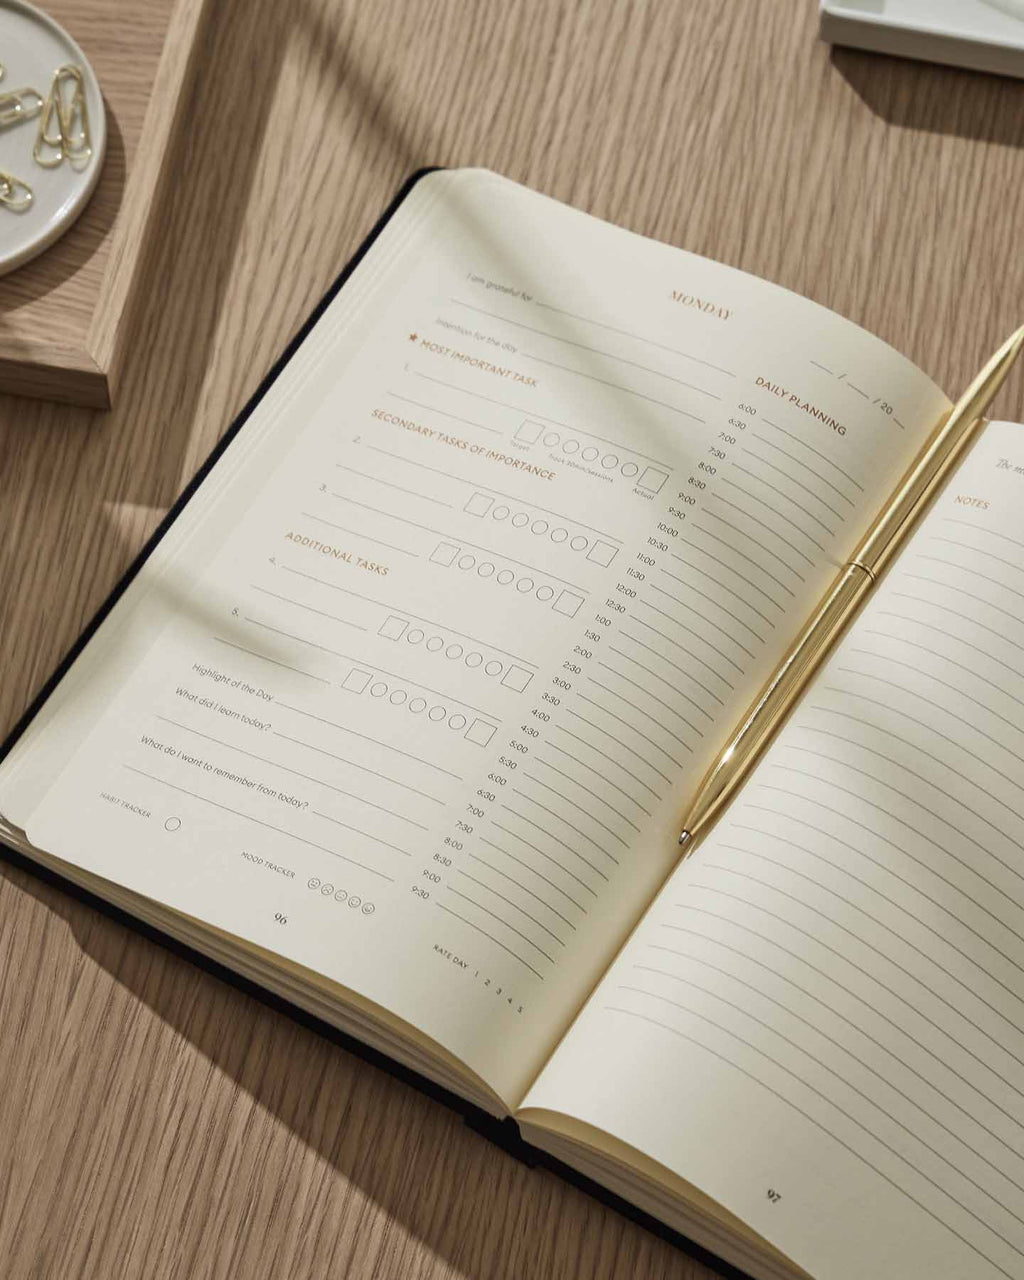 MONDAY
I am grateful for
Intention for the day
/ / 20
★ MOST IMPORTANT TASK
1.
Target
Actual
SECONDARY TASKS OF IMPORTANCE
2.
3.
ADDITIONAL TASKS
4.
5.
Highlight of the Day
What did I learn today?
What do I want to remember from today?
HABIT TRACKER
MOOD TRACKER
96
DAILY PLANNING
6:00
6:30
7:00
7:30
8:00
8:30
9:00
9:30
10:00
10:30
11:00
11:30
12:00
12:30
1:00
1:30
2:00
2:30
3:00
3:30
4:00
4:30
5:00
5:30
6:00
6:30
7:00
7:30
8:00
8:30
9:00
9:30
RATE DAY 1 2 3 4 5
The
NOTES
97